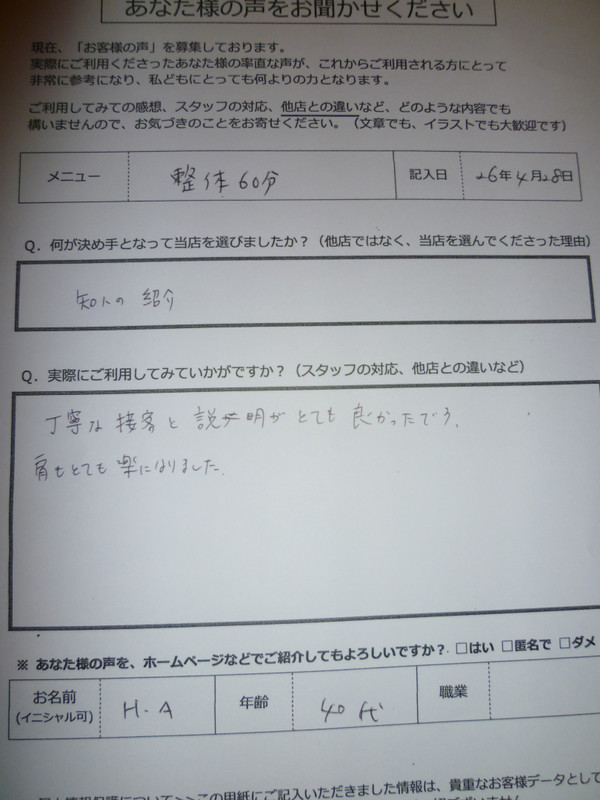 あなた様の声をお聞かせください
現在、「お客様の声」を募集しております。
実際にご利用くださったあなた様の率直な声が、これからご利用される方にとって
非常に参考になり、私どもにとっても何よりの力となります。
ご利用してみての感想、スタッフの対応、他店との違いなど、どのような内容でも
構いませんので、お気づきのことをお寄せください。（文章でも、イラストでも大歓迎です）
メニュー 整体60分 記入日 26年4月28日
Q．何が決め手となって当店を選びましたか？（他店ではなく、当店を選んでくださった理由）
知人の紹介
Q．実際にご利用してみていかがですか？（スタッフの対応、他店との違いなど）
丁寧な接客と説明がとても良かったです。
肩もとても楽になりました。
※ あなた様の声を、ホームページなどでご紹介してもよろしいですか？ □はい □匿名で □ダメ
お名前 H.A 年齢 40代 職業
(イニシャル可)
個人情報保護について>>>この用紙にご記入いただきました情報は、貴重なお客様データとして